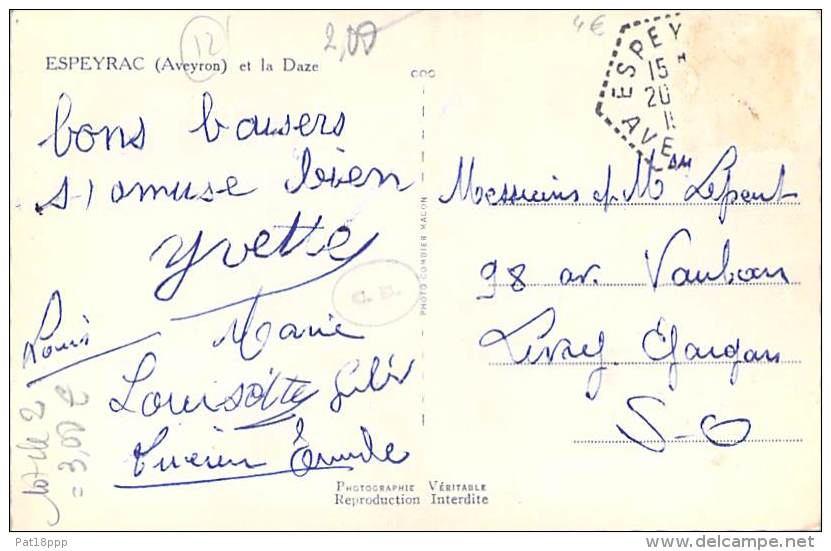 12
2,00
4€
ESPEYRAC (Aveyron) et la Daze
COC
ESPEY
15 H
20
AVE
bons baisers
s'amuse bien
Yvette
Louis
Marie
Louisette
Lucien Émile
lot de 2
= 3,00 €
C. D.
PHOTO COMBIER MACON
98 av. Vauban
Livry Gargan
S-O
PHOTOGRAPHIE VÉRITABLE
Reproduction Interdite
Pat18ppp